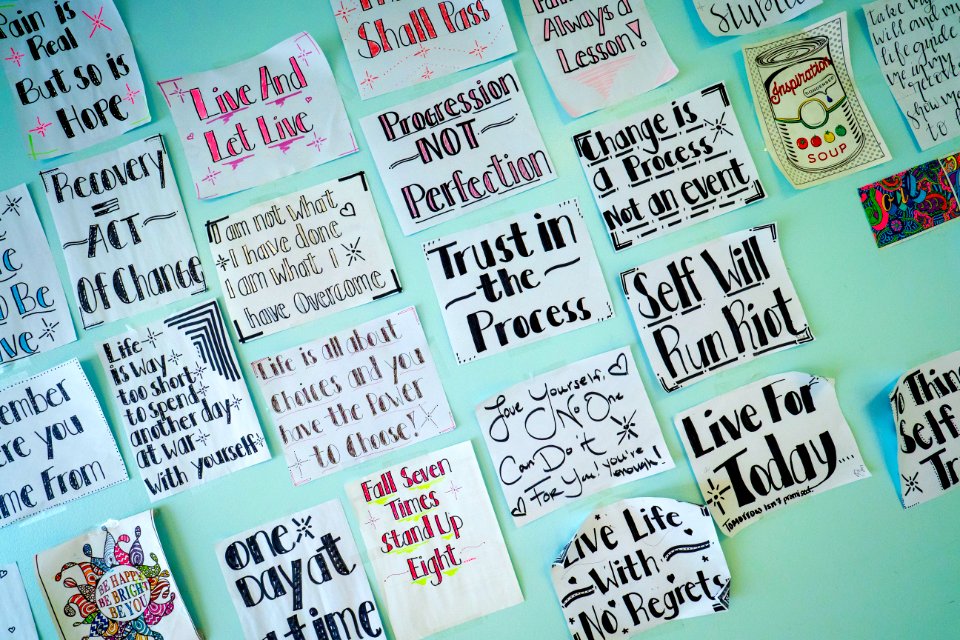 Pain is
Real
But so is
Hope
Live And
Let Live
Shall Pass
Always a
Lesson!
Take my
Will and my
life guide
me in my
recovery
show me
to
Inspiration
CONDENSED
SOUP
Progression
NOT
Perfection
Change is
a Process
Not an event
Recovery
=
ACT
Of Change
I am not what
I have done
I am what I
have Overcome
Trust in
the
Process
Self Will
Run Riot
Be
Life
Is way
too short
to spend
another day
at war
With yourself
Life is all about
choices and you
have the Power
to Choose!
Love Yourself,
No One
Can Do it
For You! You're enough!
Live For
Today...
Tomorrow isn't promised.
To Thine
Self
you
From
Fall Seven
Times
Stand Up
Eight
One
Day at
a time
Live Life
With
No Regrets
BE HAPPY
BE BRIGHT
BE YOU